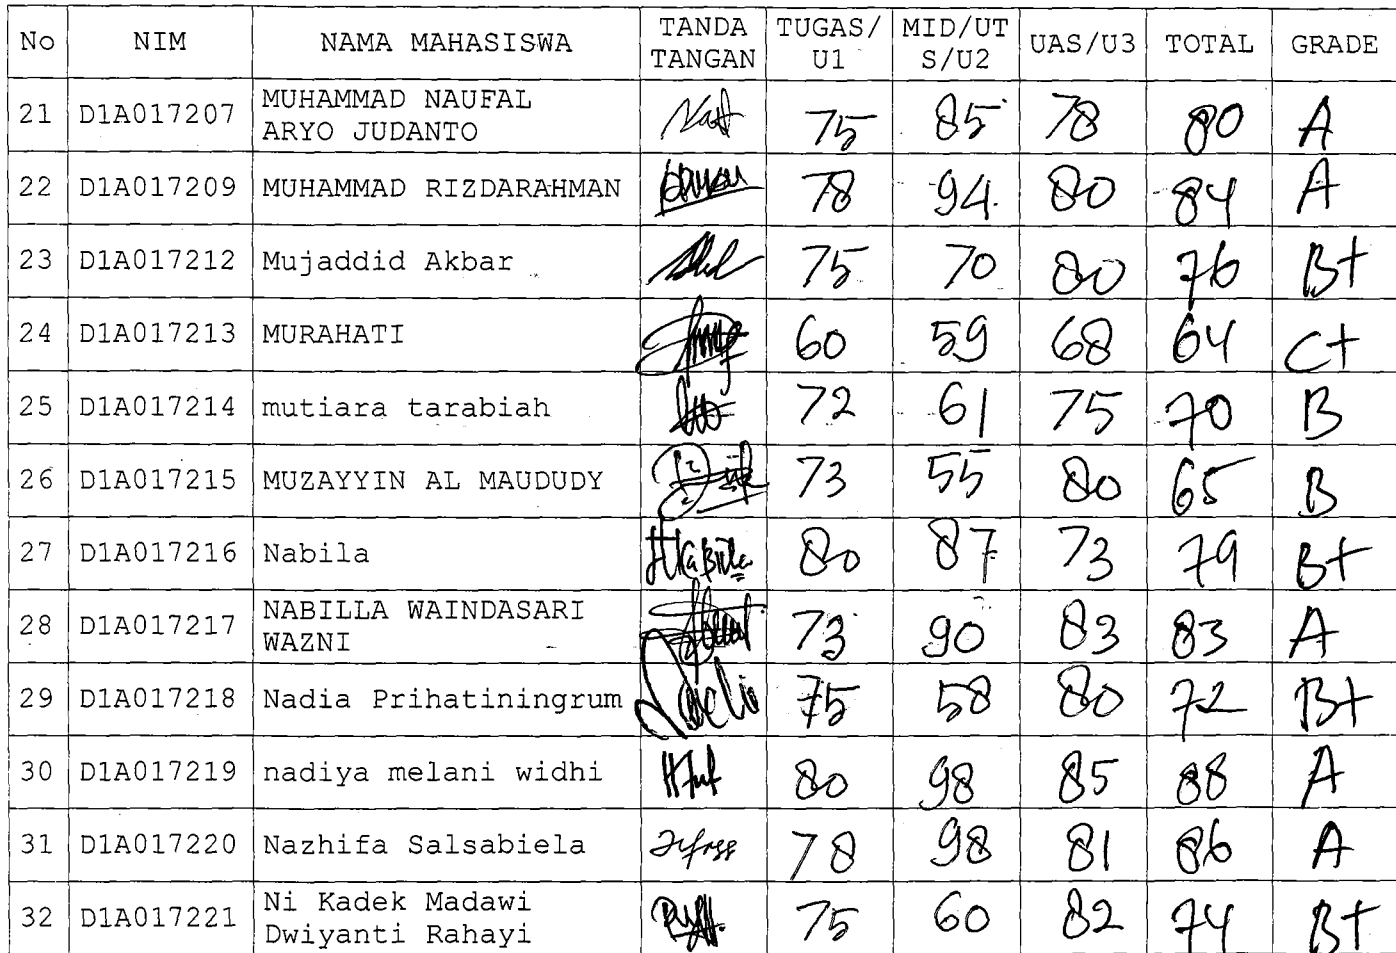 No NIM NAMA MAHASISWA TANDA TANGAN TUGAS/U1 MID/UTS/U2 UAS/U3 TOTAL GRADE
21 D1A017207 MUHAMMAD NAUFAL ARYO JUDANTO 75 85 78 80 A
22 D1A017209 MUHAMMAD RIZDARAHMAN 78 94 80 84 A
23 D1A017212 Mujaddid Akbar 75 70 80 76 B+
24 D1A017213 MURAHATI 60 59 68 64 C+
25 D1A017214 mutiara tarabiah 72 61 75 70 B
26 D1A017215 MUZAYYIN AL MAUDUDY 73 55 80 65 B
27 D1A017216 Nabila Nabila 80 87 73 79 B+
28 D1A017217 NABILLA WAINDASARI WAZNI 73 90 83 83 A
29 D1A017218 Nadia Prihatiningrum 75 58 80 72 B+
30 D1A017219 nadiya melani widhi 80 98 85 88 A
31 D1A017220 Nazhifa Salsabiela 78 98 81 86 A
32 D1A017221 Ni Kadek Madawi Dwiyanti Rahayi 75 60 82 74 B+